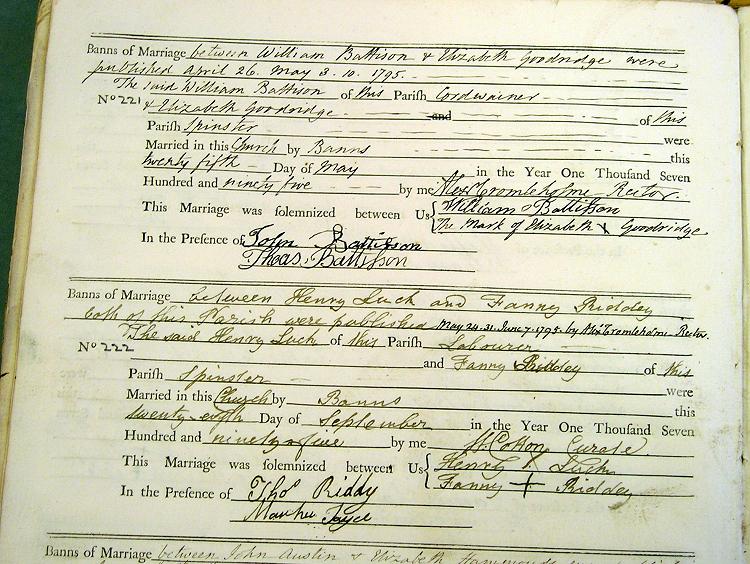 Banns of Marriage between William Battison & Elizabeth Goodridge were
published April 26. May 3. 10. 1795.
The said William Battison of this Parish Cordwainer
No 221 & Elizabeth Goodridge and of this
Parish Spinster were
Married in this Church by Banns this
twenty fifth Day of May in the Year One Thousand Seven
Hundred and ninety five by me Alex Cromleholme Rector.
This Marriage was solemnized between Us William Battisson
The Mark of Elizabeth X Goodridge
In the Presence of John Battisson
Thos. Battisson
Banns of Marriage between Henry Luck and Fanny Riddey
both of this Parish were published May 24. 31. June 7. 1795. by Alex Cromleholme Rector
The said Henry Luck of this Parish Labourer
No 222 and Fanny Riddey of this
Parish Spinster were
Married in this Church by Banns this
twenty-eigth Day of September in the Year One Thousand Seven
Hundred and ninety-five by me H. Cotton Curate
This Marriage was solemnized between Us Henry X Luck
Fanny + Riddey
In the Presence of Thos Riddy
Joyce
Banns of Marriage between John Austin & Elizabeth Hammonds